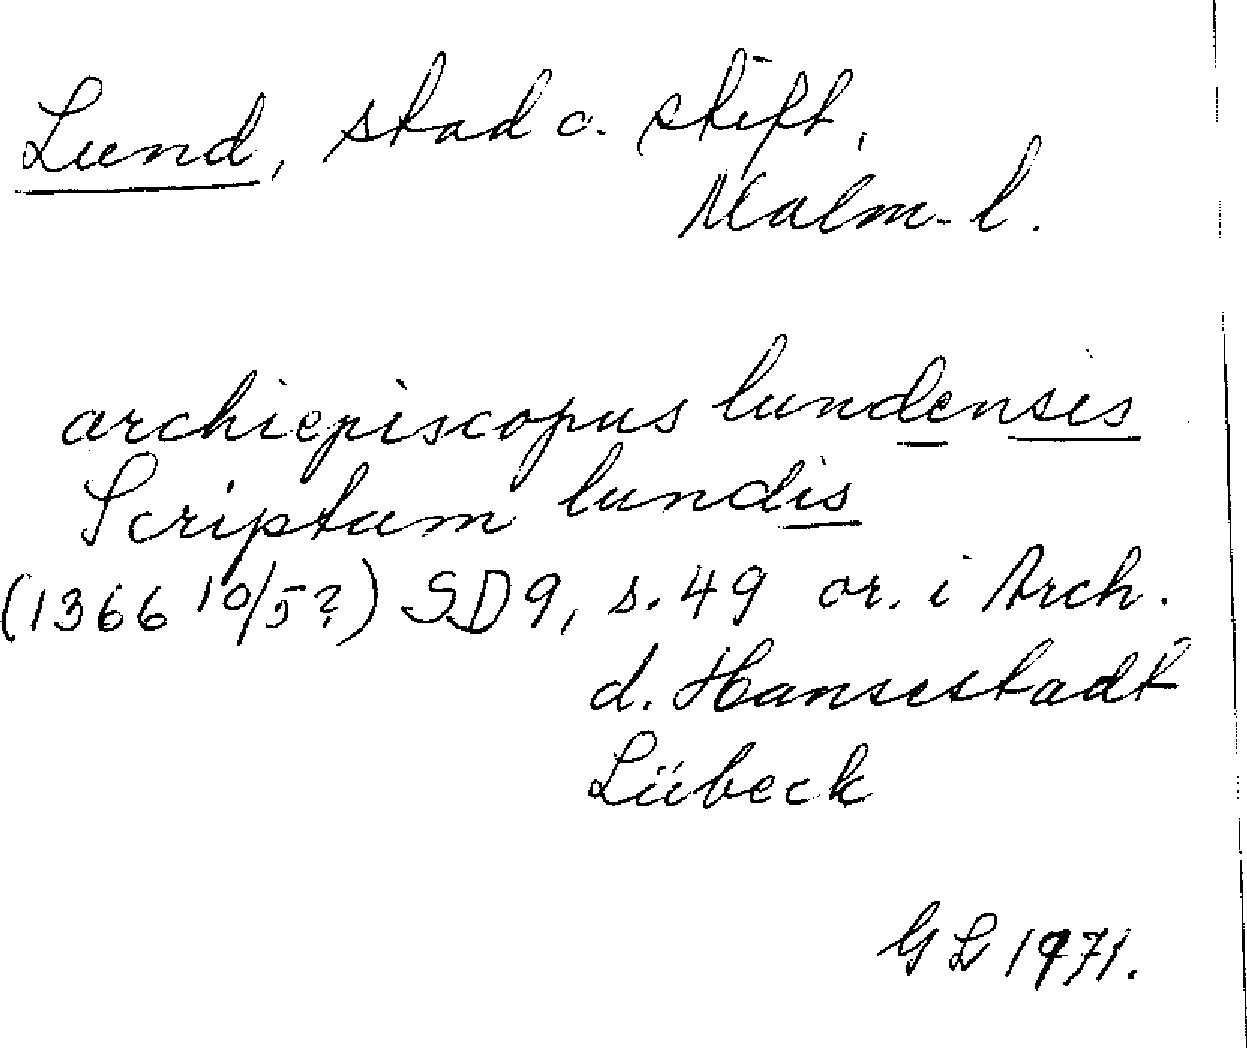 Lund, stad o. stift,
Malm-l.
archiepiscopus lundensis
Scriptum lundis
(1366 10/5?) SD9, s. 49 or. i Arch.
d. Hansestadt
Lübeck
GL 1971.